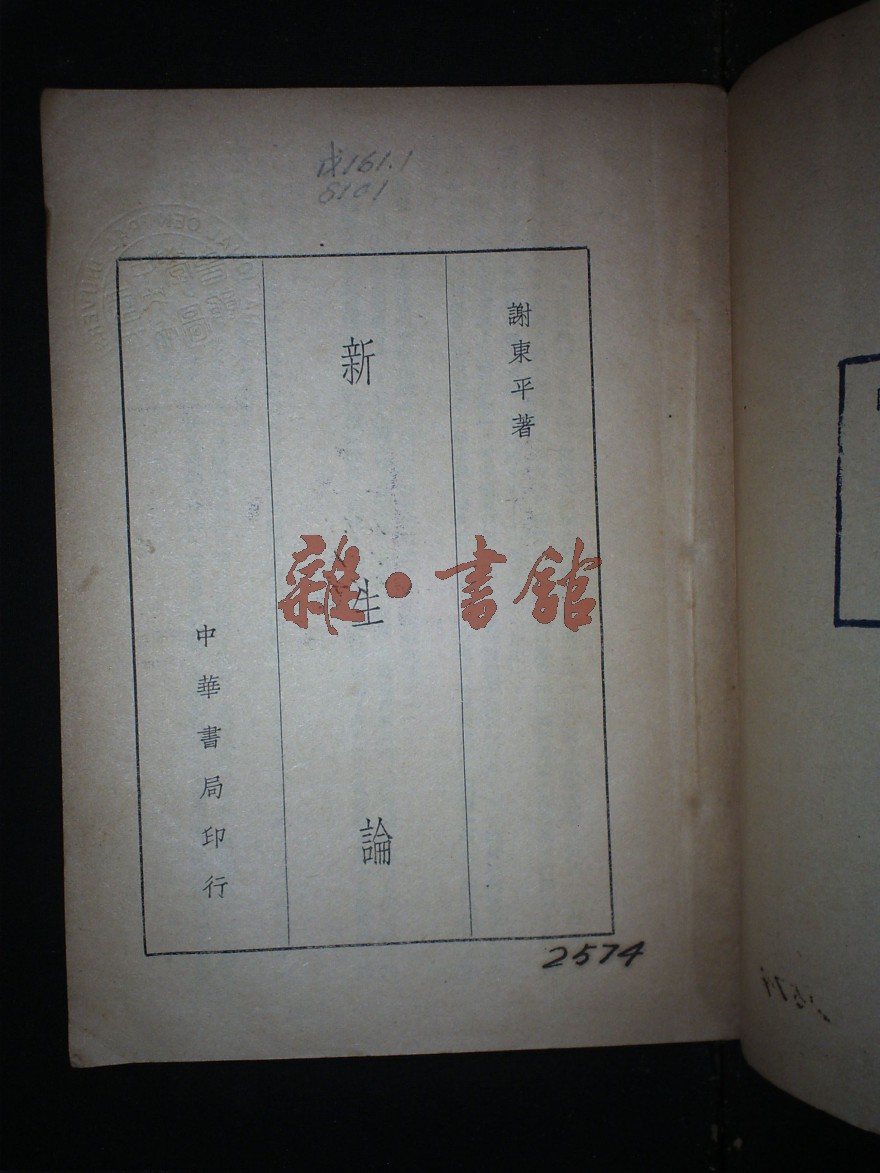 161.1
8101
謝東平著
新生論
中華書局印行
雜·書館
2574